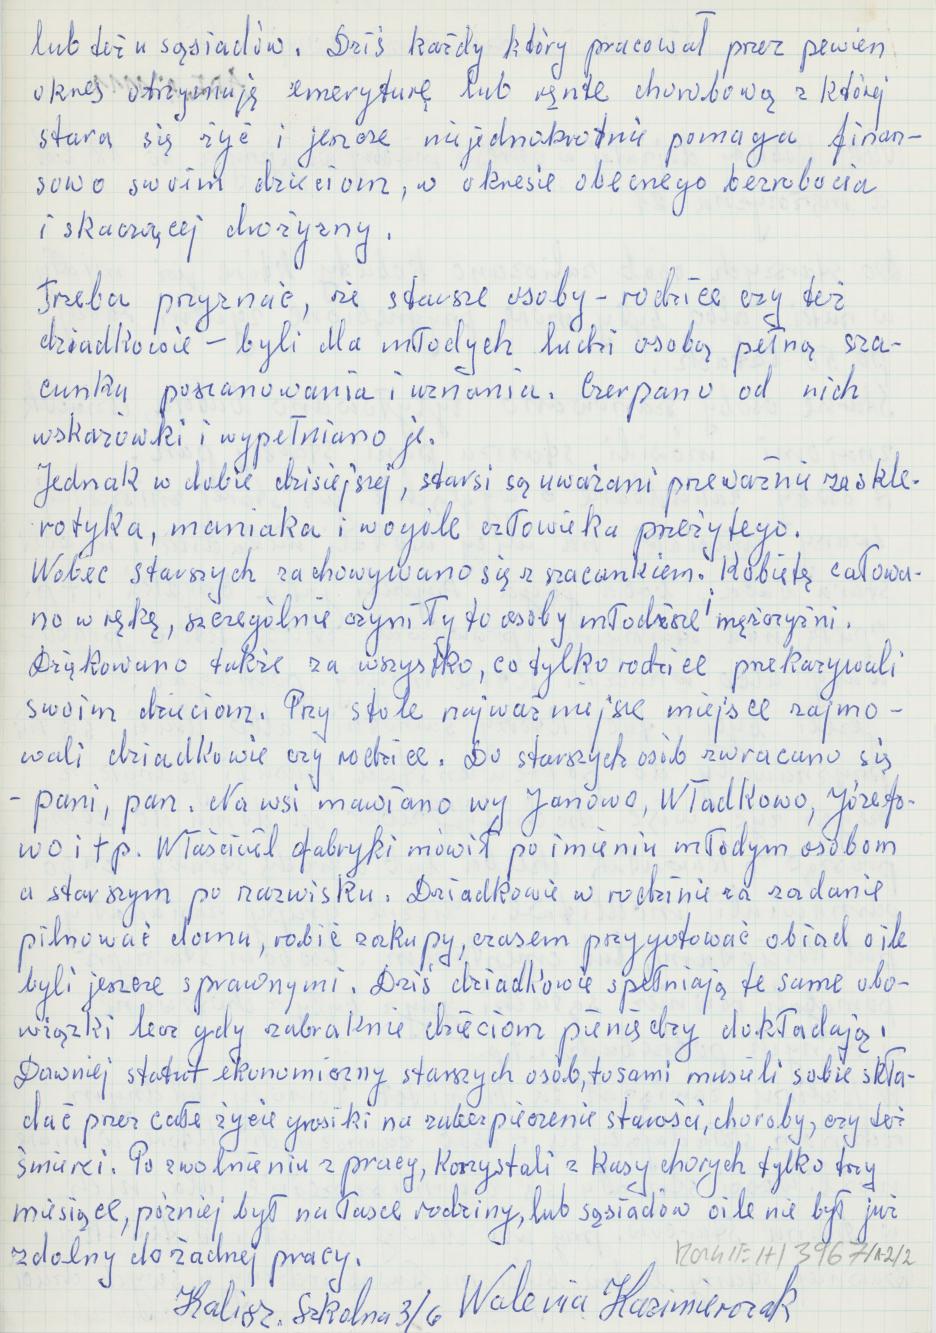 lub też u sąsiadów. Dziś każdy który pracował przez pewien
okres otrzymują emeryturę lub rentę chorobową z której
stara się żyć i jeszcze niejednokrotnie pomaga finan-
sowo swoim dzieciom, w okresie obecnego bezrobocia
i skaczącej drożyzny.
Trzeba przyznać, że starsze osoby - rodzice czy też
dziadkowie - byli dla młodych ludzi osobą pełną sza-
cunku poszanowania i uznania. Czerpano od nich
wskazówki i wypełniano je.
Jednak w dobie dzisiejszej, starsi są uważani przeważnie za skle-
rotyka, maniaka i wogóle człowieka przeżytego.
Wobec starszych zachowywano się z szacunkiem. Kobietę całowa-
no w rękę, szczególnie czyniły to osoby młodsze i mężczyźni.
Dziękowano także za wszystko, co tylko rodzice przekazywali
swoim dzieciom. Przy stole najważniejsze miejsce zajmo-
wali dziadkowie czy rodzice. Do starszych osób zwracano się
- pani, pan. Na wsi mawiano wy Janowo, Władkowo, Józefo-
wo i tp. Właściciel fabryki mówił po imieniu młodym osobom
a starszym po nazwisku. Dziadkowie w rodzinie za zadanie
pilnować domu, robić zakupy, czasem przygotować obiad o ile
byli jeszcze sprawnymi. Dziś dziadkowie spełniają te same obo-
wiązki lecz gdy zabraknie dzieciom pieniędzy dokładają.
Dawniej statut ekonomiczny starszych osób, to sami musieli sobie skła-
dać przez całe życie grosiki na zabezpieczenie starości, choroby, czy też
śmierci. Po zwolnieniu z pracy, korzystali z Kasy chorych tylko trzy
miesiące, później był na łasce rodziny, lub sąsiadów o ile nie był już
zdolny do żadnej pracy.
3967/A-2/2
Kalisz. Szkolna 3/6 Waleria Kazimierczak